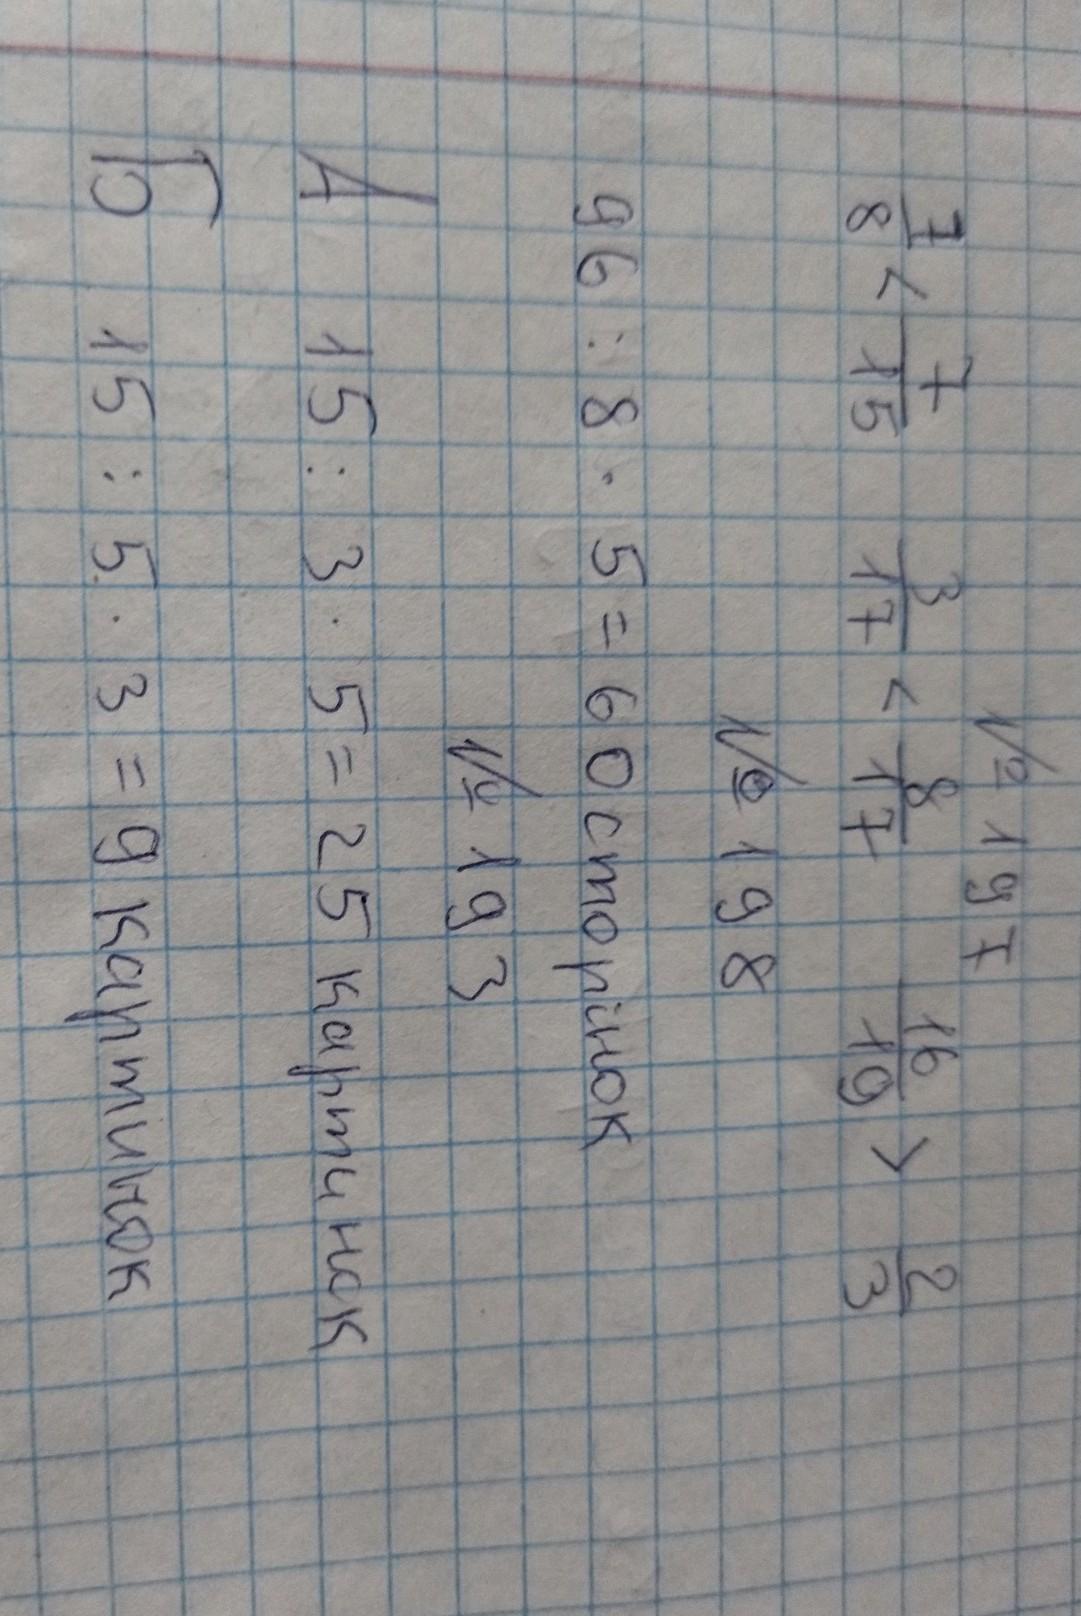 № 197
7/8 < 7/15 3/17 < 8/17 16/19 > 2/3
№ 198
96 : 8 · 5 = 60 сторінок
№ 193
А 15 : 3 · 5 = 25 картинок
Б 15 : 5 · 3 = 9 картинок